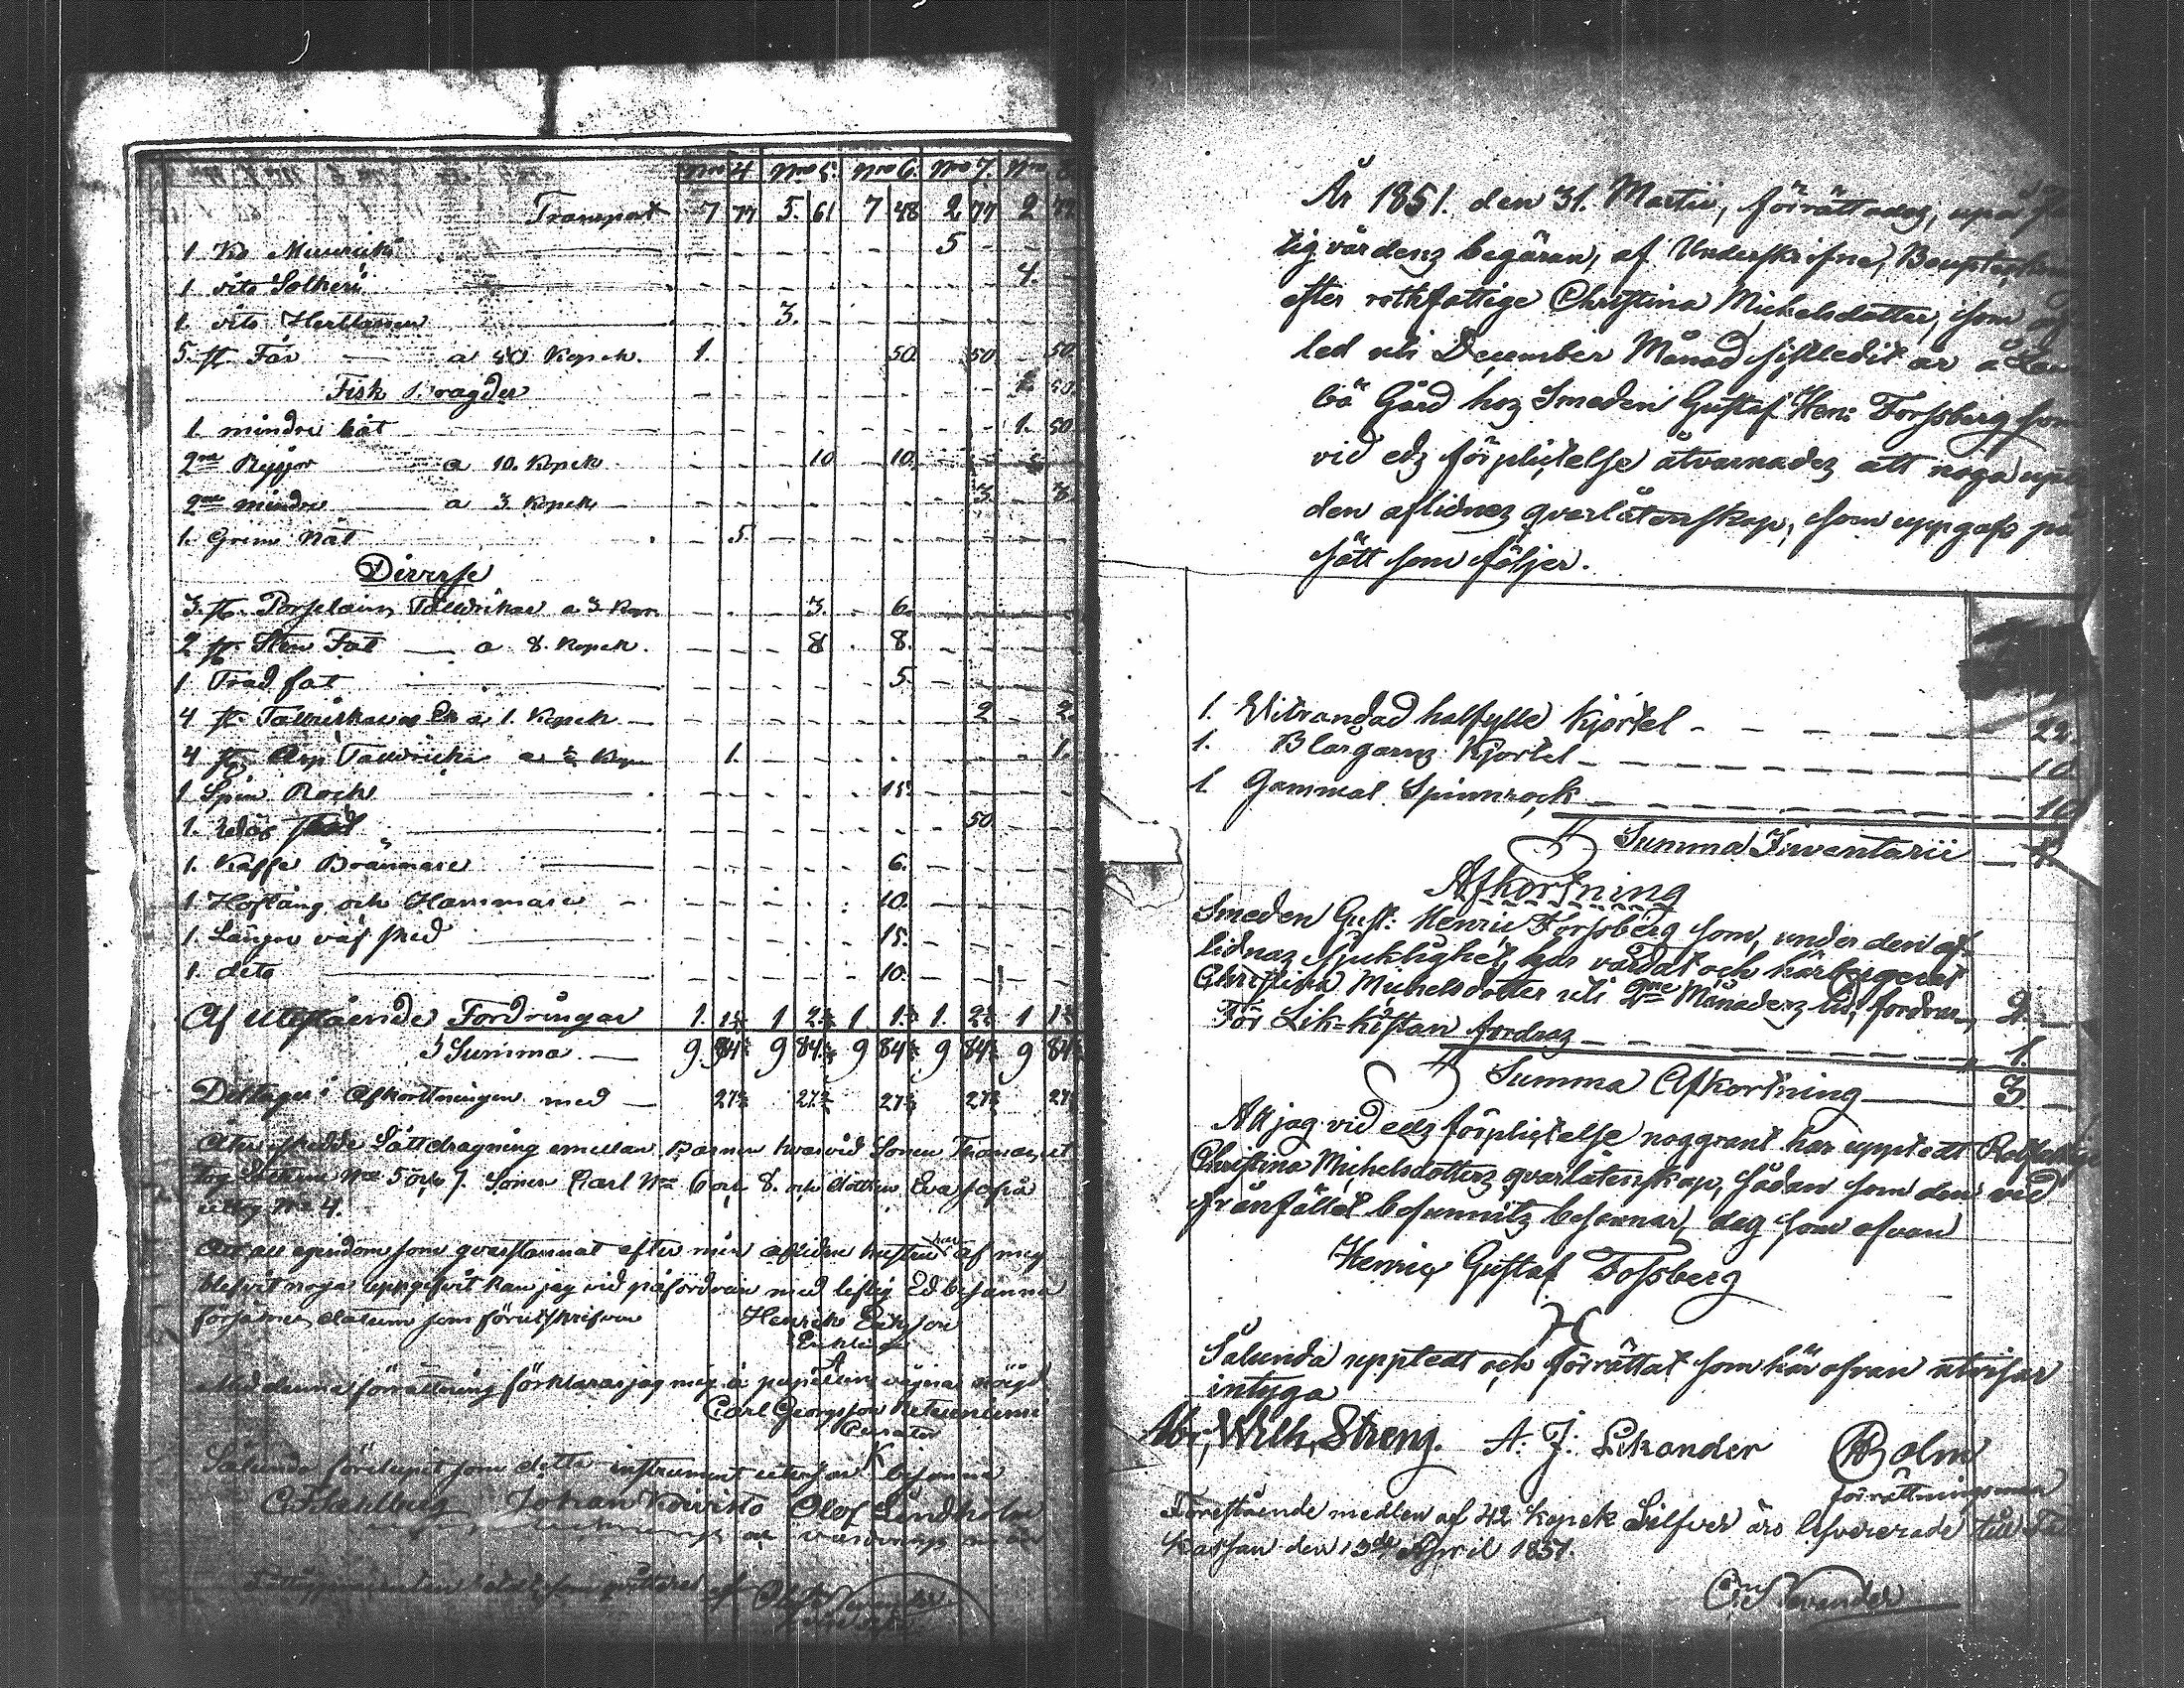 Nro 4 Nro 5. Nro 6. Nro 7. Nro 8
Transport 7 77 5. 61 7 48 2 77 2 77
1 Ko Muurikki 5
1 dito Solkeri 4.
1. dito Herttanen 3.
5. st. Får a 50 Kopek. 1. 50 50 50
Fisk bragder 2 50
1. mindre båt 1. 50
2ne Ryssjor a 10. Kopek 10 10
2ne mindre a 3 Kopek 3. 3
1. Grim Nät 5.
Diverse
3. st. Porslains Talldrikar a 3 Kop. 3. 6.
2 st. Sten Fat a 8. Kopek. 8 8.
1 Träd fat 5.
4 st. Talldrikar a 1. Kopek 2 2.
4 st. Talldrickar a ½ Kop 1. 1.
1 Spin Rock 15.
1. 50
1. Kaffe Brännare 6.
1 Hoftång och Hammare 10.
1. Längre väf sked 15.
1. dito 10.
Af Utestående Fordringar 1. 1 1 1. 1
Summa 9. 84 9 84 9 84 9 84 9 84
Deltager i Afkortningen med 27 27 27 27 27
Åter skedde Lättdragning emellan Barnen hvarvid Sonen Thomas ut
tog Lotten Nro 5 och 7. Sonen Carl Nro 6 och 8. och dottren Eva Sofia
uttog Nro 4.
Att all egendom som qvarstannat efter min aflidne hustru har af mig
blefvit noga uppgifvit kan jag vid påfordran med liflig Ed besanna
försäkrar datum som förutskrifvon Henrik Erikson
Enkling
Med denna förrättning förklarar jag mig å pupillens vägnar nöjd.
Carl Georgsson
Curator
Sålunda förelupit som detta instrument utvisar besanna
C. F. Dahlberg Johan Koivisto Olof Lindholm
värderings män

År 1851. den 31. Martii, förrättades, uppå
tig vårdens begäran, af Underskrifne, Bouptekn
efter rothfattige Christina Michelsdotter, som af
led uti December Månad sistledit år å
bö Gård hos Smeden Gustaf Hen: Forssberg som
vid eds förpligtelse åtvarnades att noga upp
den aflidnes qvarlåtenskap, som uppgafs på
sätt som följer.
1. Hvitrandad halfylle Kjortel 22.
1. Blargarns Kjortel 10
1. Gammal Spinnrock 10
Summa Inventarii
Afkortning
Smeden Gust: Henric Forssberg som, under den af-
lidnas sjuklighet, har vårdat och härbergerat
Christina Michelsdotter uti 2ne Månaders tid, fordrar 2.
För Lik-kistan fordras 1.
Summa Afkortning 3.
At jag vid eds förplictelse noggrant har upptedt Rotfattige
Christina Michelsdotters qvarlåtenskap, sådan som den vid
frånfället befunnits besannar, dag som ofvan
Henric Gustaf Fossberg
Sålunda upptedt och förrättat som här ofvan utvisar
intyga
Abr. Wilh. Streng. A. J. Sikander Bolm
förrättningsman
Förestående medlen af 42 kopek Silfver äro lefvererade till
Kassan den 13de April 1851.